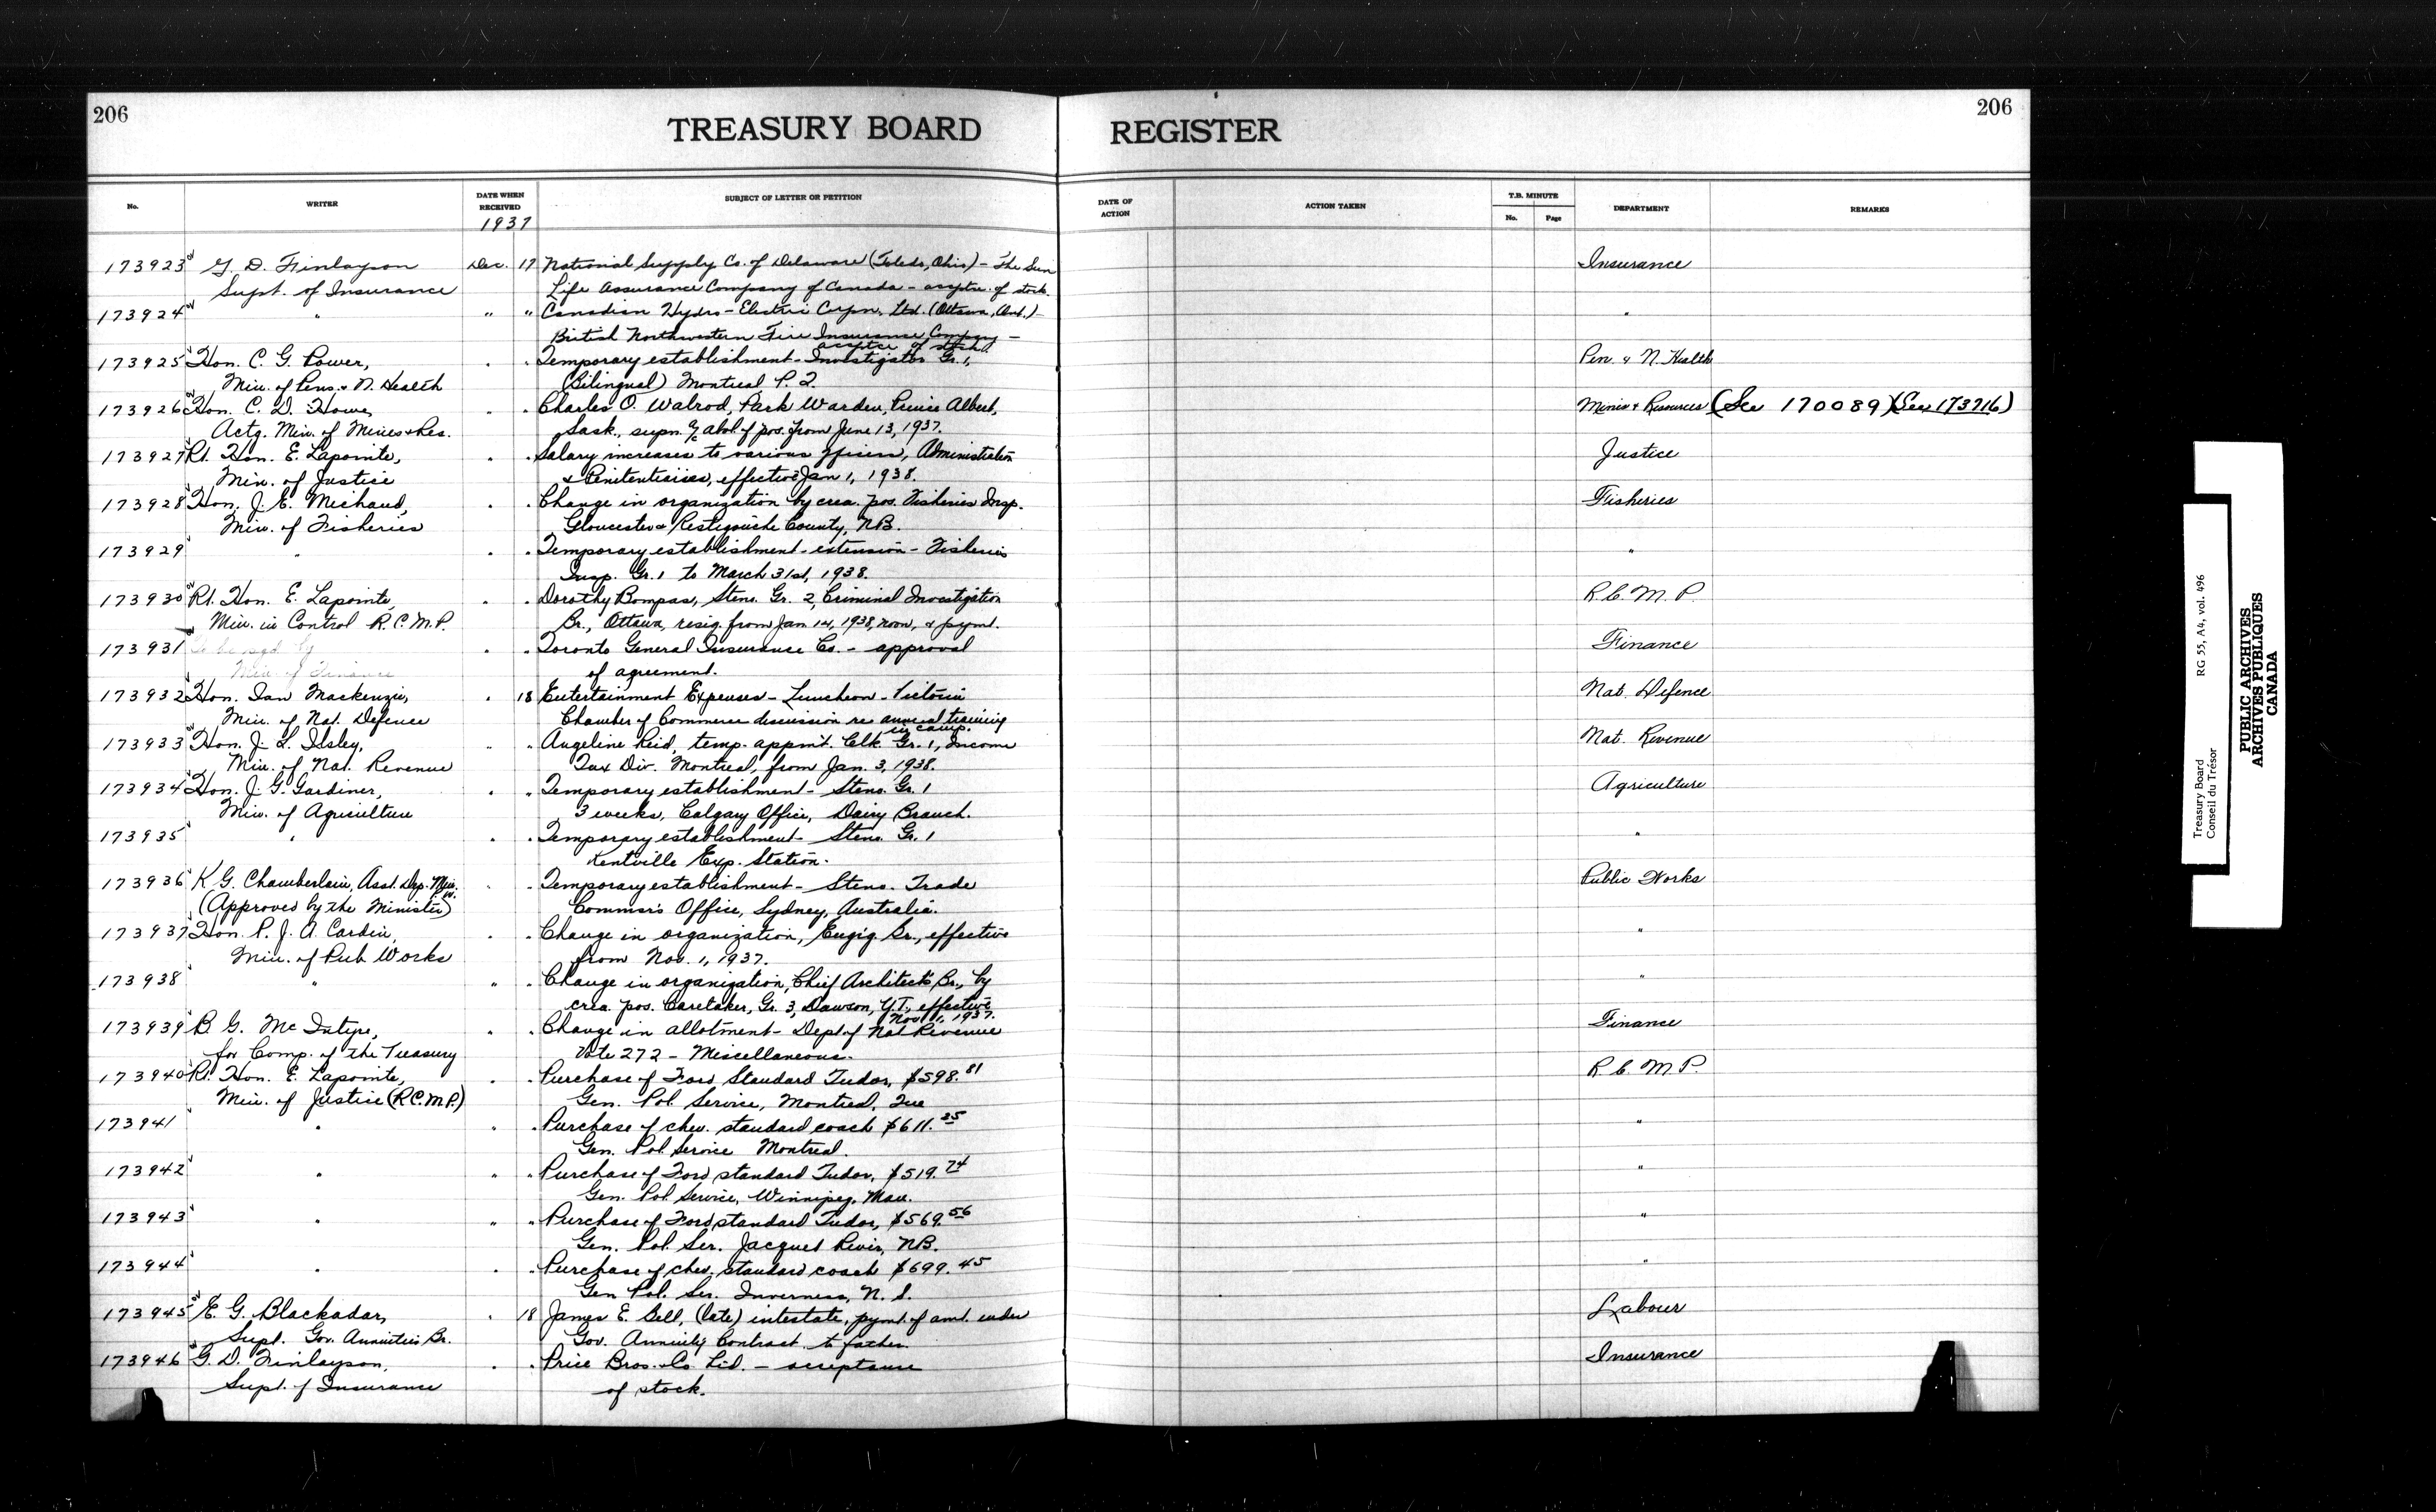 206
206
TREASURY BOARD REGISTER
No.
WRITER
DATE WHEN RECEIVED
1937
SUBJECT OF LETTER OR PETITION
DATE OF ACTION
ACTION TAKEN
T.B. MINUTE
No.
Page
DEPARTMENT
REMARKS
173923 G. D. Finlayson Dec. 17 National Supply Co. of Delaware (Toledo, Ohio) - The Sun Insurance
Supt. of Insurance Life Assurance Company of Canada - accptce. of stock.
173924 " " " Canadian Hydro-Electric Corpn. Ltd. (Ottawa, Ont.) - "
British Northwestern Fire Insurance Company -
accptce of stock.
173925 Hon. C. G. Power, " " Temporary establishment - Investigator Gr. 1, Pen. & N. Health
Min. of Pens. & N. Health (Bilingual) Montreal P. Q.
173926 Hon. C. D. Howe, " " Charles O. Walrod, Park Warden, Prince Albert, Mines & Resources (See 170089) (See 173716)
Actg. Min. of Mines & Res. Sask., supn. a/c abol. of pos. from June 13, 1937.
173927 Rt. Hon. E. Lapointe, " " Salary increases to various officers, Administration Justice
Min. of Justice & Penitentiaries, effective Jan 1, 1938.
173928 Hon. J. E. Michaud, " " Change in organization by crea. pos. Fisheries Insp. Fisheries
Min. of Fisheries Gloucester & Restigouche County, N.B.
173929 " " " Temporary establishment - extension - Fisheries "
Insp. Gr. 1 to March 31st, 1938.
173930 Rt. Hon. E. Lapointe, " " Dorothy Bompas, Steno. Gr. 2, Criminal Investigation R.C.M.P.
Min. in Control R.C.M.P. Br., Ottawa, resig. from Jan 14, 1938, noon, & paymt.
173931 To be sgd by " " Toronto General Insurance Co. - approval Finance
Min. of Finance of agreement.
173932 Hon. Ian Mackenzie, " 18 Entertainment Expenses - Luncheon - Victoria Nat. Defence
Min. of Nat. Defence Chamber of Commerce discussion re annual training
in camp.
173933 Hon. J. L. Ilsley, " " Angeline Reid, temp. appmt. Clk. Gr. 1, Income Nat. Revenue
Min. of Nat. Revenue Tax Div. Montreal, from Jan. 3, 1938.
173934 Hon. J. G. Gardiner, " " Temporary establishment - Steno. Gr. 1 Agriculture
Min. of Agriculture 3 weeks, Calgary Office, Dairy Branch.
173935 " " " Temporary establishment - Steno. Gr. 1 "
Kentville Exp. Station.
173936 K. G. Chamberlain, Asst. Dep. Min. " " Temporary establishment - Steno. Trade Public Works
(Approved by the Minister) Commsr's Office, Sydney, Australia.
173937 Hon. P. J. A. Cardin, " " Change in organization, Engig. Br., effective "
Min. of Pub. Works from Nov. 1, 1937.
173938 " " " Change in organization, Chief Architect's Br., by "
crea. pos. Caretaker, Gr. 3, Dawson, Y.T., effective
Nov. 1, 1937.
173939 B. G. McIntyre, " " Change in allotment - Dept of Nat Revenue Finance
for Comp. of the Treasury Vote 272 - Miscellaneous.
173940 Rt. Hon. E. Lapointe, " " Purchase of Ford Standard Tudor, $598.81 R.C.M.P.
Min. of Justice (R.C.M.P.) Gen. Pol. Service, Montreal, Que
173941 " " " Purchase of chev. standard coach $611.25 "
Gen. Pol Service Montreal.
173942 " " " Purchase of Ford standard Tudor, $519.74 "
Gen. Pol. Service, Winnipeg, Man.
173943 " " " Purchase of Ford standard Tudor, $569.56 "
Gen. Pol. Ser. Jacquet River, N.B.
173944 " " " Purchase of chev. standard coach $699.45 "
Gen Pol. Ser. Inverness, N. S.
173945 E. G. Blackadar, " 18 James E. Bell, (late) intestate, pymt. of amt. under Labour
Supt. Gov. Annuities Br. Gov. Annuity Contract to father.
173946 G. D. Finlayson, " " Price Bros. & Co Ltd. - acceptance Insurance
Supt. of Insurance of stock.
Treasury Board
Conseil du Trésor
RG 55, A4, vol. 496
PUBLIC ARCHIVES
ARCHIVES PUBLIQUES
CANADA